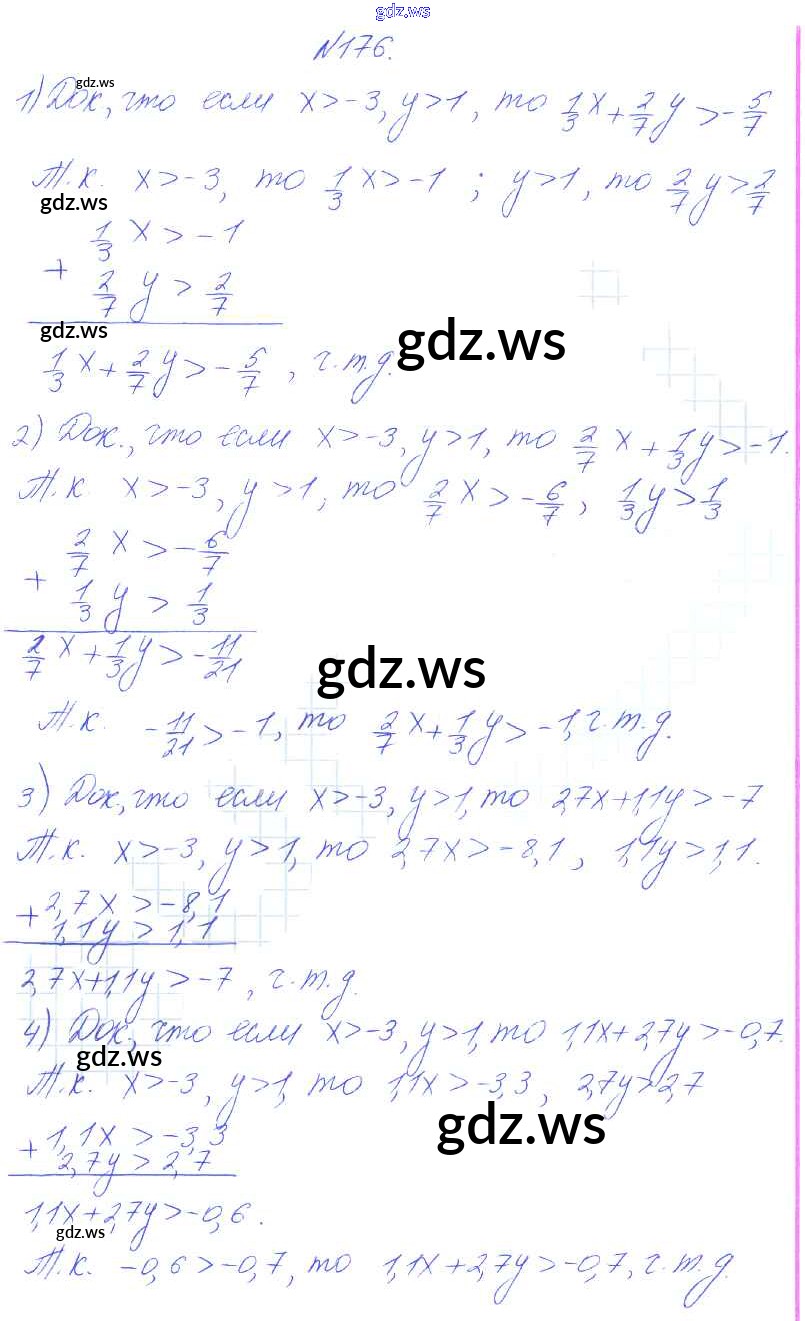 gdz.ws
№176.
gdz.ws
1) Док, что если x>-3, y>1, то 1/3 x + 2/7 y > -5/7
Т.к. x>-3, то 1/3 x>-1 ; y>1, то 2/7 y > 2/7
gdz.ws
1/3 x > -1
+
2/7 y > 2/7
gdz.ws
gdz.ws
1/3 x + 2/7 y > -5/7 , ч.т.д.
2) Док., что если x>-3, y>1, то 2/7 x + 1/3 y > -1.
Т.к. x>-3, y>1, то 2/7 x > -6/7 , 1/3 y > 1/3
2/7 x > -6/7
+
1/3 y > 1/3
2/7 x + 1/3 y > -11/21
gdz.ws
Т.к. -11/21 > -1, то 2/7 x + 1/3 y > -1, ч.т.д.
3) Док, что если x>-3, y>1, то 2,7x+1,1y>-7
Т.к. x>-3, y>1, то 2,7x>-8,1 , 1,1y>1,1.
+ 2,7x>-8,1
1,1y > 1,1
2,7x+1,1y > -7 , ч.т.д.
4) Док, что если x>-3, y>1, то 1,1x+2,7y>-0,7.
gdz.ws
Т.к. x>-3, y>1, то 1,1x>-3,3 , 2,7y>2,7
gdz.ws
+ 1,1x > -3,3
2,7y > 2,7
1,1x+2,7y>-0,6.
gdz.ws
Т.к. -0,6>-0,7, то 1,1x+2,7y>-0,7, ч.т.д.